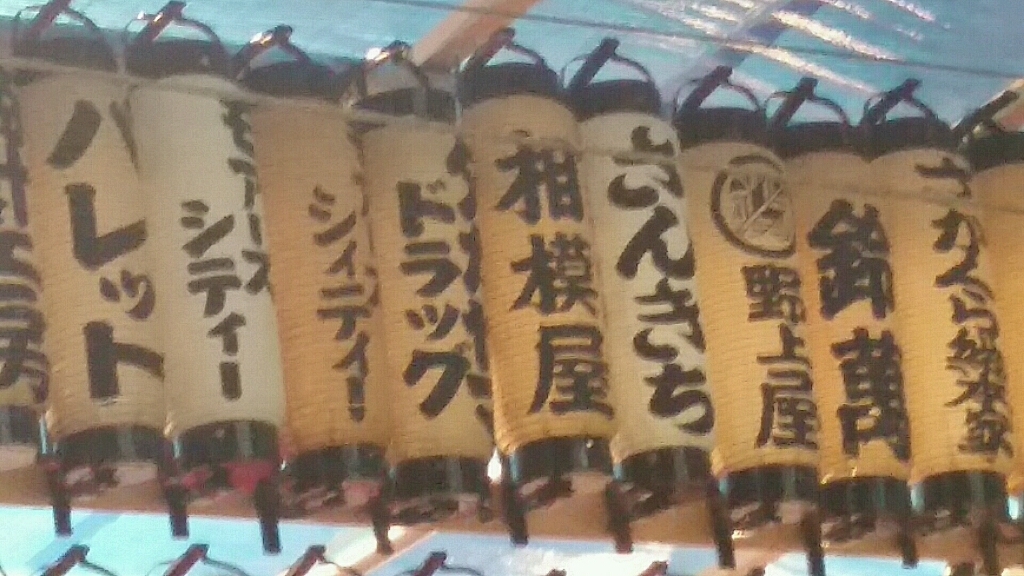 パレット
シティー
シィティー
ドラック
相模屋
さんきち
野上屋
鈴萬
さかくら総本家